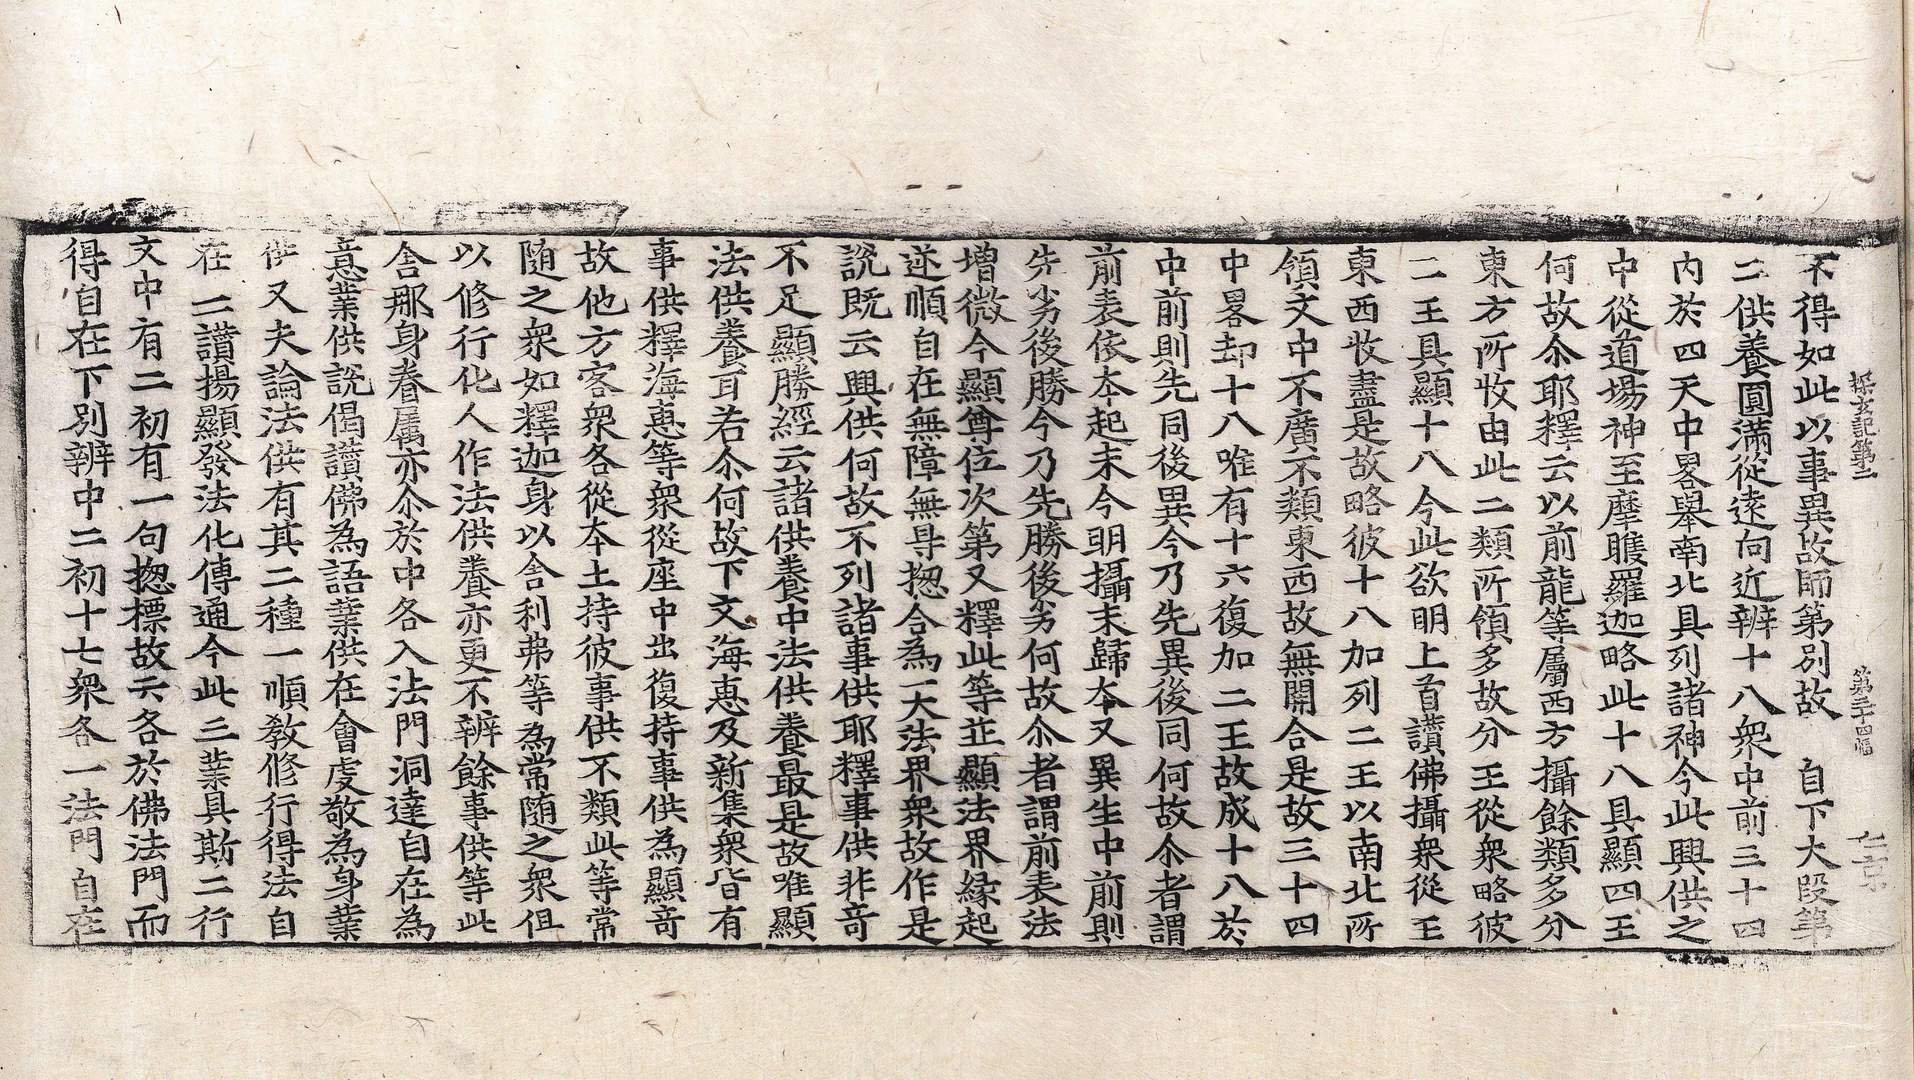 探玄記第二 第三十四幅 仁京
不得如此以事異故師第別故 自下大段第
二供養圓滿從遠向近辨十八衆中前三十四
内於四天中畧舉南北具列諸神今此興供之
中從道場神至摩睺羅迦略此十八具顯四王
何故尒耶釋云以前龍等屬西方攝餘類多分
東方所收由此二類所領多故分王從衆略彼
二王具顯十八今此欲明上首讚佛攝衆從王
東西收盡是故略彼十八加列二王以南北所
領文中不廣不類東西故無開合是故三十四
中畧却十八唯有十六復加二王故成十八於
中前則先同後異今乃先異後同何故尒者謂
前表依本起末今明攝末歸本又異生中前則
先劣後勝今乃先勝後劣何故尒者謂前表法
增微今顯尊位次第又釋此等並顯法界緣起
逆順自在無障無㝵揔合為一大法界衆故作是
說既云興供何故不列諸事供耶釋事供非竒
不足顯勝經云諸供養中法供養最是故唯顯
法供養耳若尒何故下文海惠及新集衆皆有
事供釋海惠等衆從座中出復持事供為顯竒
故他方客衆各從本土持彼事供不類此等常
随之衆如釋迦身以舍利弗等為常随之衆但
以修行化人作法供養亦更不辨餘事供等此
舍那身眷属亦尒於中各入法門洞達自在為
意業供說偈讚佛為語業供在會䖍敬為身業
供又夫論法供有其二種一順教修行得法自
在二讚揚顯發法化傳通今此三業具斯二行
文中有二初有一句揔標故云各於佛法門而
得自在下別辨中二初十七衆各一法門自在